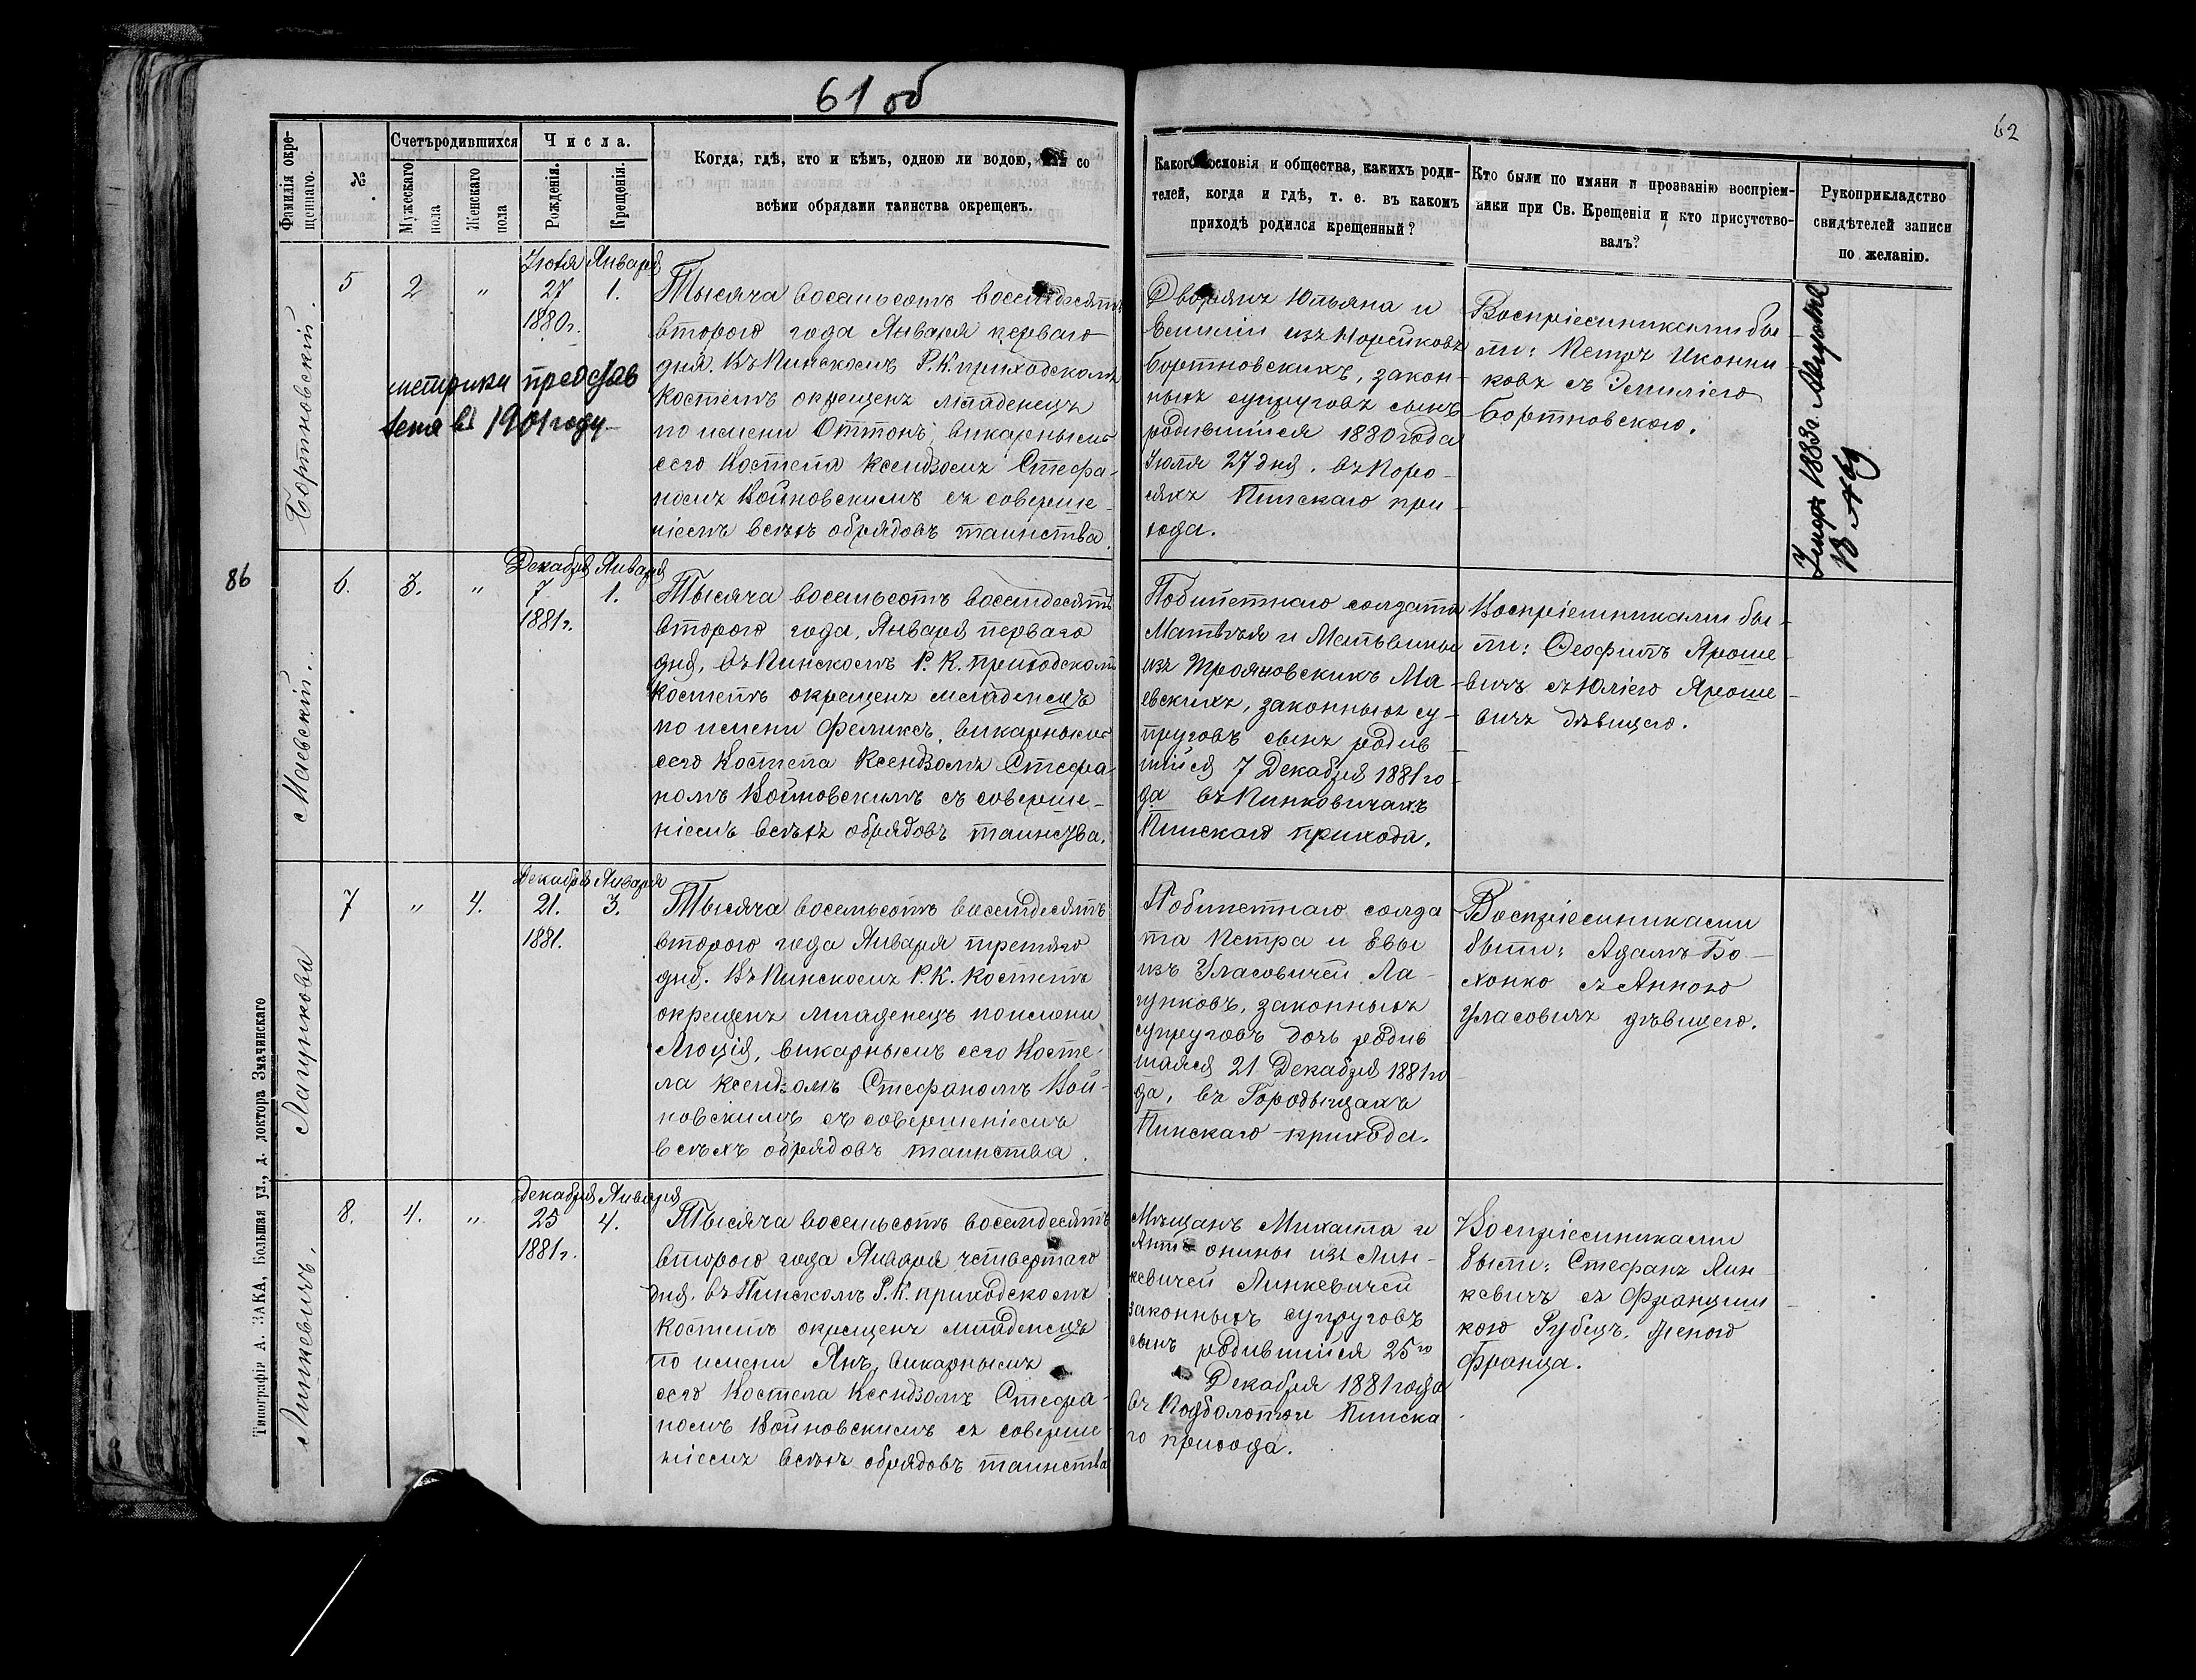 61 об
62
Фамилія окре-
щеннаго.
№
Счетъ родившихся
Мужескаго
пола
Женскаго
пола
Числа.
Рожденія.
Крещенія.
Когда, гдѣ, кто и кѣмъ, одною ли водою, со
всѣми обрядами таинства окрещенъ.
Какого сословія и общества, какихъ роди-
телей, когда и гдѣ, т. е. въ какомъ
приходѣ родился крещенный?
Кто были по имяни и прозванію воспріем-
ники при Св. Крещеніи и кто присутство-
валъ?
Рукоприкладство
свидѣтелей записи
по желанію.
Бортновскій.
5
2
"
Іюля
27
1880 г.
Января
1.
метрики представ
лена въ 1901 году
Тысяча восемьсотъ восемьдесятъ
второго года Января перваго
дня. Въ Пинскомъ Р. К. приходскомъ
костелѣ окрещенъ младенецъ
по имени Оттонъ, викарнымъ
сего Костела Ксендзомъ Стефа-
номъ Войновскимъ съ соверше-
ніемъ всѣхъ обрядовъ таинства.
Дворянъ Юльяна и
изъ Норейковъ
Бортновскихъ, закон-
ныхъ супруговъ сынъ
родившійся 1880 года
Іюля 27 дня. въ Поро-
сяхъ Пинскаго при-
хода.
Воспріемниками бы
ли: Петръ Иконни
ковъ съ Эмиліею
Бортновскою.
1883 г.
86
Маевскій.
6.
3.
"
Декабря
7
1881 г.
Января
1.
Тысяча восемьсотъ восемдесятъ
второго года, Января перваго
дня, въ Пинскомъ Р. К. приходскомъ
костелѣ окрещенъ младенецъ
по имени Феликсъ, викарнымъ
сего Костела Ксендзомъ Стефа
номъ Войновскимъ съ соверше-
ніемъ всѣхъ обрядовъ таинства.
Побилетнаго солдата
Матвѣя и Мальвины
изъ Трояновскихъ Ма-
евскихъ, законныхъ су-
пруговъ сынъ родив
шійся 7 Декабря 1881 го-
да въ Пинковичахъ
Пинскаго прихода.
Воспріемниками бы-
ли: Ѳеофилъ Яроше-
вичъ съ Юліею Яроше-
вичъ дѣвицею.
Лагункова
7
"
4.
Декабря
21.
1881.
Января
3.
Тысяча восемьсотъ восемдесятъ
второго года Января третяго
дня. Въ Пинскомъ Р. К. Костелѣ
окрещенъ младенецъ по имени
Люція, викарнымъ сего Косте-
ла Ксендзомъ Стефаномъ Вой-
новскимъ съ совершеніемъ
всѣхъ обрядовъ таинства.
Побилетнаго солда
та Петра и Евы
изъ Уласовичей Ла-
гунковъ, законныхъ
супруговъ дочь родив
шаяся 21 Декабря 1881 го
да, въ Городыщахъ
Пинскаго прихода.
Воспріемниками
были: Адамъ Бо-
хонко съ Анною
Уласовичъ дѣвицею.
Линкевичъ.
8.
4.
"
Декабря
25
1881 г.
Января
4.
Тысяча восемьсотъ восемдесятъ
второго года Января четвертаго
дня. въ Пинскомъ Р. К. приходскомъ
Костелѣ окрещенъ младенецъ
по имени Янъ, викарнымъ
сего Костела Ксендзомъ Стефа-
номъ Войновскимъ съ соверше-
ніемъ всѣхъ обрядовъ таинства
Мѣщанъ Михаила и
Анто-онины изъ Лин-
кевичей Линкевичей
законныхъ супруговъ
сынъ родившійся 25го
Декабря 1881 года
въ Подболотьи Пинска
го прихода.
Воспріемниками
были: Стефанъ Лин
кевичъ съ Францишкою
Рубецъ, женою
Франца.
Типографія А. ЗАКА, Большая ул., д. доктора Змачинскаго